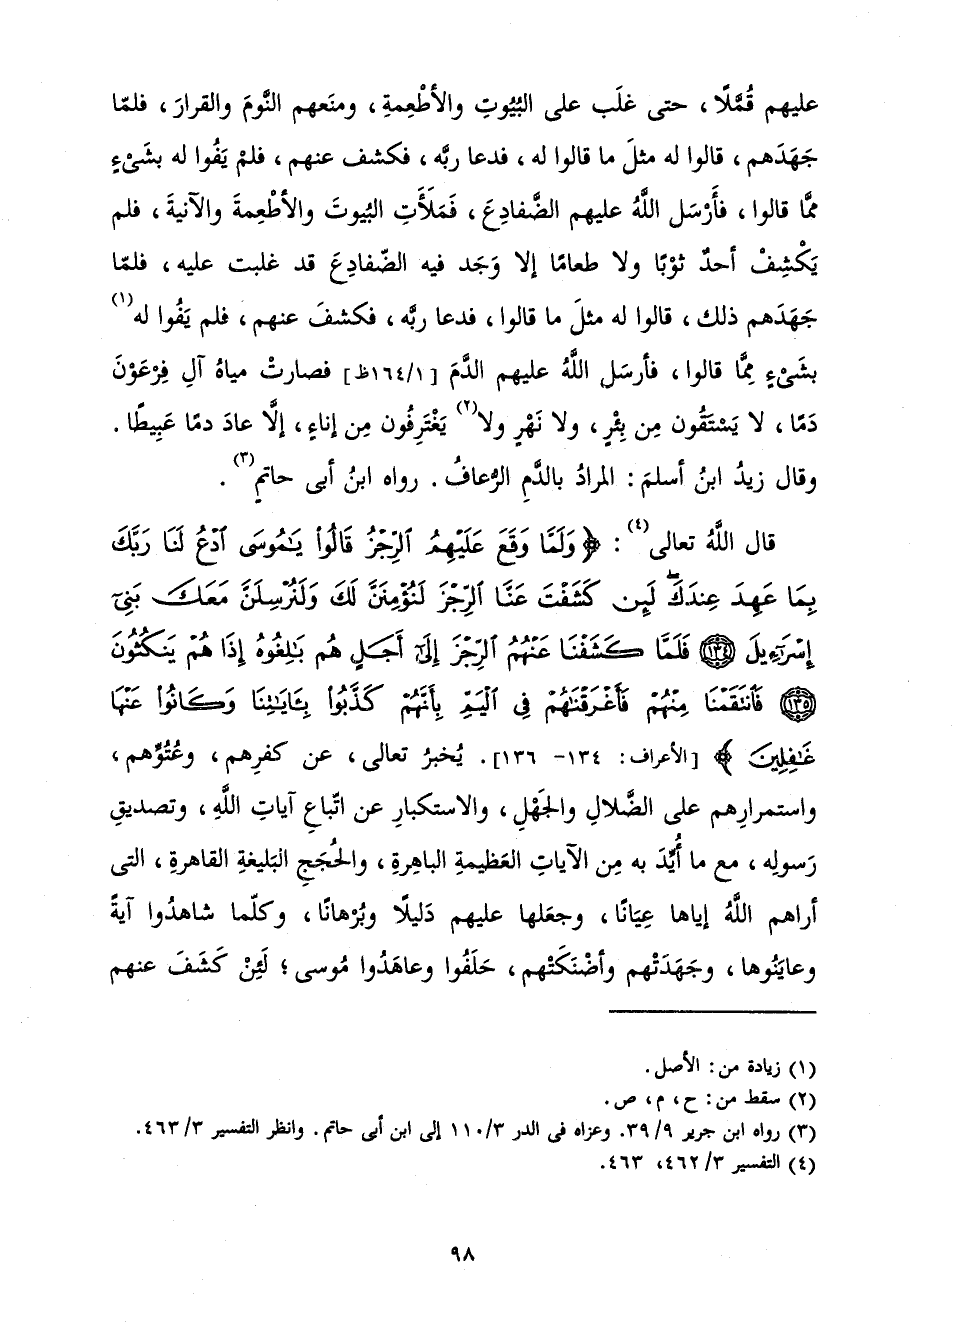 عليهم قُمَّلًا ، حتى غلَب على البُيُوتِ والأطْعِمةِ ، ومنَعهم النَّومَ والقرارَ ، فلمّا
جَهَدَهم ، قالوا له مثلَ ما قالوا له ، فدعا ربَّه ، فكشف عنهم ، فلمْ يَفُوا له بشَىْءٍ
ممَّا قالوا ، فأَرْسَل اللَّهُ عليهم الضَّفادِعَ ، فَمَلَأَتِ البُيوتَ والأطْعِمةَ والآنيةَ ، فلم
يَكْشِفْ أحدٌ ثوْبًا ولا طعامًا إلا وَجَد فيه الضّفادِعَ قد غلبت عليه ، فلمّا
جهَدَهم ذلك ، قالوا له مثلَ ما قالوا ، فدعا ربَّه ، فكشفَ عنهم ، فلم يَفُوا له(١)
بشَىْءٍ مِمَّا قالوا ، فأرسَل اللَّهُ عليهم الدَّمَ [١/١٦٤ظ] فصارتْ مياهُ آلِ فِرْعَوْنَ
دَمًا ، لا يَسْتَقُون مِن بِئْرٍ ، ولا نَهْرٍ ولا(٢) يَغْتَرِفُون مِن إناءٍ ، إلَّا عادَ دمًا عَبِيطًا .
وقال زيدُ ابنُ أسلمَ : المرادُ بالدَّمِ الرُّعافُ . رواه ابنُ أبى حاتمٍ(٣) .
قال اللَّهُ تعالى(٤) : ﴿ وَلَمَّا وَقَعَ عَلَيْهِمُ ٱلرِّجْزُ قَالُوا۟ يَٰمُوسَى ٱدْعُ لَنَا رَبَّكَ
بِمَا عَهِدَ عِندَكَ ۖ لَئِن كَشَفْتَ عَنَّا ٱلرِّجْزَ لَنُؤْمِنَنَّ لَكَ وَلَنُرْسِلَنَّ مَعَكَ بَنِىٓ
إِسْرَٰٓءِيلَ ﴿١٣٤﴾ فَلَمَّا كَشَفْنَا عَنْهُمُ ٱلرِّجْزَ إِلَىٰٓ أَجَلٍ هُم بَٰلِغُوهُ إِذَا هُمْ يَنكُثُونَ
﴿١٣٥﴾ فَٱنتَقَمْنَا مِنْهُمْ فَأَغْرَقْنَٰهُمْ فِى ٱلْيَمِّ بِأَنَّهُمْ كَذَّبُوا۟ بِـَٔايَٰتِنَا وَكَانُوا۟ عَنْهَا
غَٰفِلِينَ ﴾ [الأعراف: ١٣٤- ١٣٦]. يُخبرُ تعالى ، عن كفرِهم ، وعُتُوِّهم ،
واستمرارِهم على الضَّلالِ والجَهْلِ ، والاستكبارِ عن اتّباعِ آياتِ اللَّهِ ، وتصديقِ
رَسولِه ، مع ما أُيِّدَ به مِن الآياتِ العَظيمةِ الباهِرةِ ، والحُجَجِ البَليغةِ القاهرةِ ، التى
أراهم اللَّهُ إياها عِيَانًا ، وجعَلها عليهم دَليلًا وبُرْهانًا ، وكلّما شاهدُوا آيةً
وعايَنُوها ، وجَهَدَتْهم وأضْنَكَتْهم ، حَلَفُوا وعاهَدُوا مُوسى ؛ لَئِنْ كَشَفَ عنهم
(١) زيادة من : الأصل .
(٢) سقط من : ح ، م ، ص .
(٣) رواه ابن جرير ٣٩/٩. وعزاه فى الدر ١١٠/٣ إلى ابن أبى حاتم . وانظر التفسير ٤٦٣/٣.
(٤) التفسير ٤٦٢/٣، ٤٦٣.
٩٨